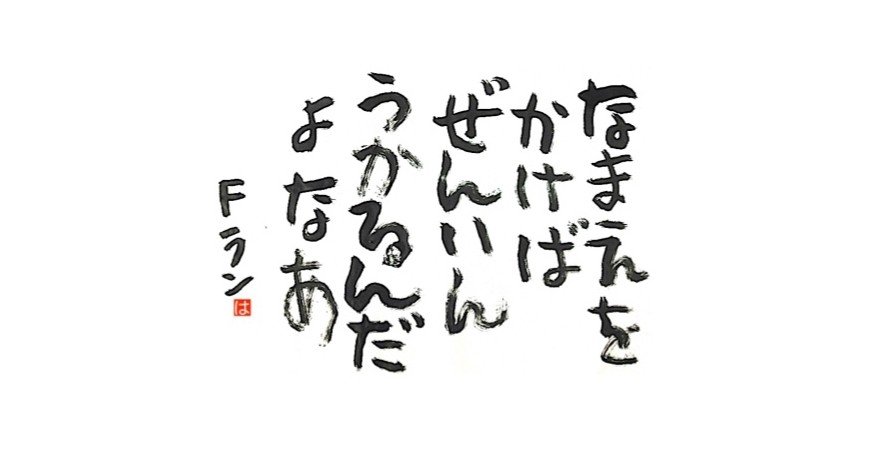 なまえを
かけば
ぜんいん
うかるんだ
よなあ
Fラン
は